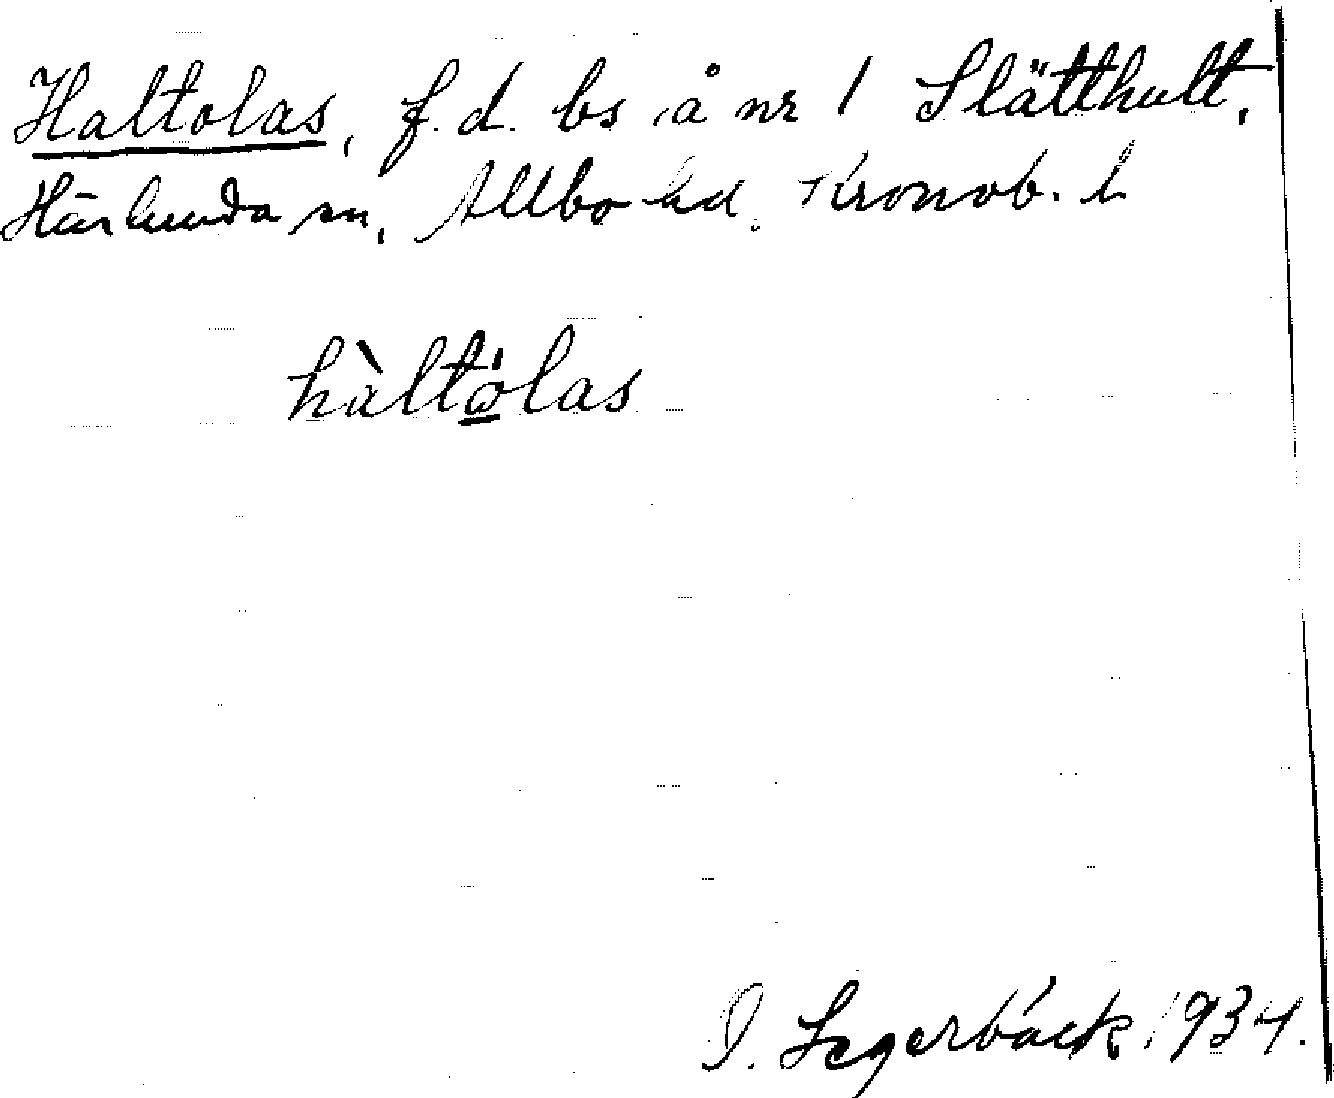 Haltolas, f.d. bs å nr 1 Slätthult,
Härlunda sn, Allbo hd. Kronob. l
hàltώ̲las
I. Segerbäck 1934.